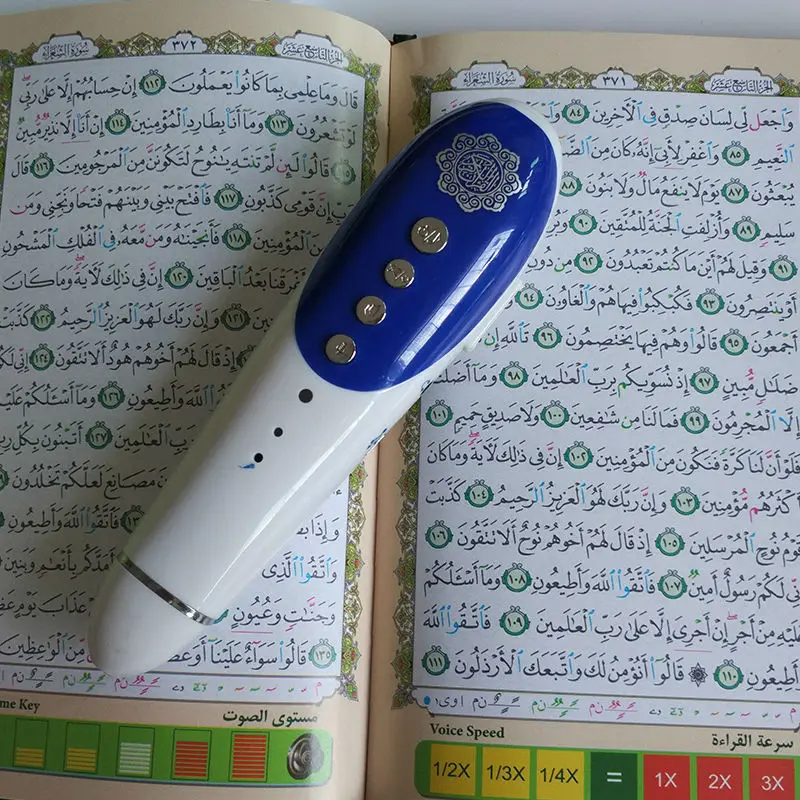 الجزء التاسع عشر ٣٧١ سورة الشعراء
وَاجْعَل لِّي لِسَانَ صِدْقٍ فِي الْآخِرِينَ ٨٤
النَّعِيمِ ٨٥ وَاغْفِرْ لِأَبِي إِنَّهُ كَانَ مِنَ
يُبْعَثُونَ ٨٧ يَوْمَ لَا يَنفَعُ مَالٌ وَلَا بَنُونَ ٨٨
سَلِيمٍ ٨٩ وَأُزْلِفَتِ الْجَنَّةُ لِلْمُتَّقِينَ ٩٠
٩١ وَقِيلَ لَهُمْ أَيْنَ مَا كُنتُمْ تَعْبُدُونَ ٩٢ مِن دُونِ
أَوْ يَنتَصِرُونَ ٩٣ فَكُبْكِبُوا فِيهَا هُمْ وَالْغَاوُونَ ٩٤
أَجْمَعُونَ ٩٥ قَالُوا وَهُمْ فِيهَا يَخْتَصِمُونَ ٩٦ تَاللَّهِ إِن
ضَلَالٍ مُّبِينٍ ٩٧ إِذْ نُسَوِّيكُم بِرَبِّ الْعَالَمِينَ ٩٨ وَمَا أَضَلَّنَا
إِلَّا الْمُجْرِمُونَ ٩٩ فَمَا لَنَا مِن شَافِعِينَ ١٠٠ وَلَا صَدِيقٍ حَمِيمٍ ١٠١
فَلَوْ أَنَّ لَنَا كَرَّةً فَنَكُونَ مِنَ الْمُؤْمِنِينَ ١٠٢ إِنَّ فِي ذَٰلِكَ لَآيَةً وَمَا كَانَ
أَكْثَرُهُم مُّؤْمِنِينَ ١٠٣ وَإِنَّ رَبَّكَ لَهُوَ الْعَزِيزُ الرَّحِيمُ ١٠٤ كَذَّبَتْ
قَوْمُ نُوحٍ الْمُرْسَلِينَ ١٠٥ إِذْ قَالَ لَهُمْ أَخُوهُمْ نُوحٌ أَلَا تَتَّقُونَ ١٠٦
إِنِّي لَكُمْ رَسُولٌ أَمِينٌ ١٠٧ فَاتَّقُوا اللَّهَ وَأَطِيعُونِ ١٠٨ وَمَا أَسْأَلُكُمْ
عَلَيْهِ مِنْ أَجْرٍ إِنْ أَجْرِيَ إِلَّا عَلَىٰ رَبِّ الْعَالَمِينَ ١٠٩ فَاتَّقُوا اللَّهَ
وَأَطِيعُونِ ١١٠ قَالُوا أَنُؤْمِنُ لَكَ وَاتَّبَعَكَ الْأَرْذَلُونَ ١١١
سرعة القراءة Voice Speed
1/2X 1/3X 1/4X = 1X 2X 3X
الجزء التاسع عشر ٣٧٢ سورة الشعراء
قَالَ وَمَا عِلْمِي بِمَا كَانُوا يَعْمَلُونَ ١١٢ إِنْ حِسَابُهُمْ إِلَّا عَلَىٰ رَبِّي
لَوْ تَشْعُرُونَ ١١٣ وَمَا أَنَا بِطَارِدِ الْمُؤْمِنِينَ ١١٤ إِنْ أَنَا إِلَّا نَذِيرٌ مُّبِينٌ
١١٥ قَالُوا لَئِن لَّمْ تَنتَهِ يَا نُوحُ لَتَكُونَنَّ مِنَ الْمَرْجُومِينَ ١١٦ قَالَ
رَبِّ إِنَّ قَوْمِي كَذَّبُونِ ١١٧ فَافْتَحْ بَيْنِي وَبَيْنَهُمْ فَتْحًا وَنَجِّنِي وَمَن
مِنَ الْمُؤْمِنِينَ ١١٨ فَأَنجَيْنَاهُ وَمَن مَّعَهُ فِي الْفُلْكِ الْمَشْحُونِ
أَغْرَقْنَا بَعْدُ الْبَاقِينَ ١٢٠ إِنَّ فِي ذَٰلِكَ لَآيَةً وَمَا كَانَ
١٢١ وَإِنَّ رَبَّكَ لَهُوَ الْعَزِيزُ الرَّحِيمُ ١٢٢ كَذَّبَتْ
إِذْ قَالَ لَهُمْ أَخُوهُمْ هُودٌ أَلَا تَتَّقُونَ ١٢٤ إِنِّي لَكُمْ
اللَّهَ وَأَطِيعُونِ ١٢٦ وَمَا أَسْأَلُكُمْ عَلَيْهِ
الْعَالَمِينَ ١٢٧ أَتَبْنُونَ بِكُلِّ
مَصَانِعَ لَعَلَّكُمْ تَخْلُدُونَ
وَإِذَا فَاتَّقُوا اللَّهَ وَأَطِيعُونِ
وَاتَّقُوا الَّذِي أَمَدَّكُم بِأَنْعَامٍ وَبَنِينَ
وَجَنَّاتٍ وَعُيُونٍ عَذَابَ يَوْمٍ
١٣٥ قَالُوا سَوَاءٌ عَلَيْنَا أَوَعَظْتَ مِّنَ الْوَاعِظِينَ
مستوى الصوت
me Key